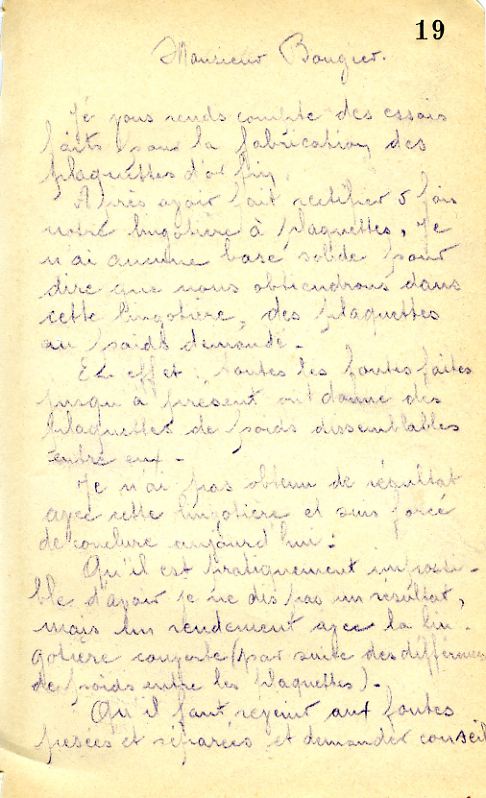 19
Monsieur Bougier.
Je vous rends compte des essais
faits pour la fabrication des
plaquettes d'or fin.
Après avoir fait rectifier 5 fois
notre lingotière à plaquettes, Je
n'ai aucune base solide pour
dire que nous obtiendrons dans
cette lingotière, des plaquettes
au poids demandé.
En effet: toutes les fontes faites
jusqu'à présent ont donné des
plaquettes de poids dissemblables
entre eux.
Je n'ai pas obtenu de résultat
avec cette lingotière et suis forcé
de conclure aujourd'hui:
Qu'il est pratiquement impossi-
ble d'avoir je ne dis pas un résultat,
mais un rendement avec la lin-
gotière couverte (par suite des différences
de poids entre les plaquettes).
Qu'il faut revenir aux fontes
pesées et séparées et demander conseil